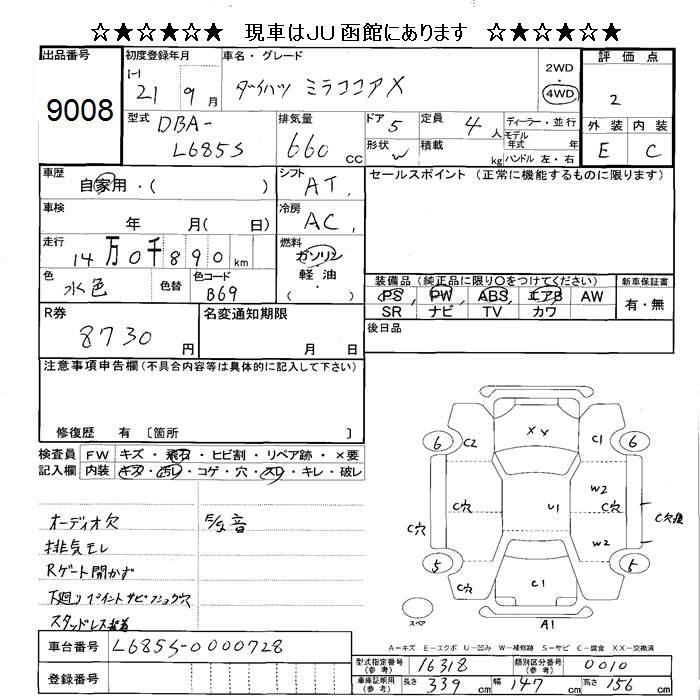 ☆★☆★☆★ 現車はJU函館にあります ☆★☆★☆★
出品番号
9008
初度登録年月
21 9 月
車名・グレード
ダイハツ ミラココアX
2WD
・
4WD
評価点
2
外装 内装
E C
型式
DBA-
L685S
排気量
660 cc
ドア 5
形状 W
定員 4 人
積載 kg
ディーラー・並行
モデル
年式 年
ハンドル 左・右
車歴
自家用・( )
シフト
AT
車検
年 月( 日)
冷房
AC
走行
14万0千890 km
燃料
ガソリン
軽油
( )
色
水色
色替
色コード
B69
R券
8730 円
名変通知期限
月 日
セールスポイント (正常に機能するものに限ります)
装備品 (純正品に限り○をつけてください)
PS PW ABS エアB AW
SR ナビ TV カワ
新車保証書
有・無
後日品
注意事項申告欄(不具合内容等は具体的に記入して下さい)
修復歴 有 〔箇所 〕
検査員
記入欄
FW キズ・飛石・ヒビ割・リペア跡・×要
内装 キズ・汚レ・コゲ・穴・スレ・キレ・破レ
オーディオ欠
E/g音
排気モレ
Rゲート開かず
下廻りペイントサビフショク穴
スタッドレス装着
車台番号 L685S-0000728
登録番号
XX
6 C2 C1 6
W2
C穴 C穴 U1 C欠穫
W2
5 C穴 C1 5
スペア
A1
A=キズ E=エクボ U=凹み W=補修跡 S=サビ C=腐食 XX=交換済
型式指定番号
(参考)
16318
類別区分番号
(参考)
0010
車庫証明用
(参考)
長さ 339 cm 幅 147 cm 高さ 156 cm